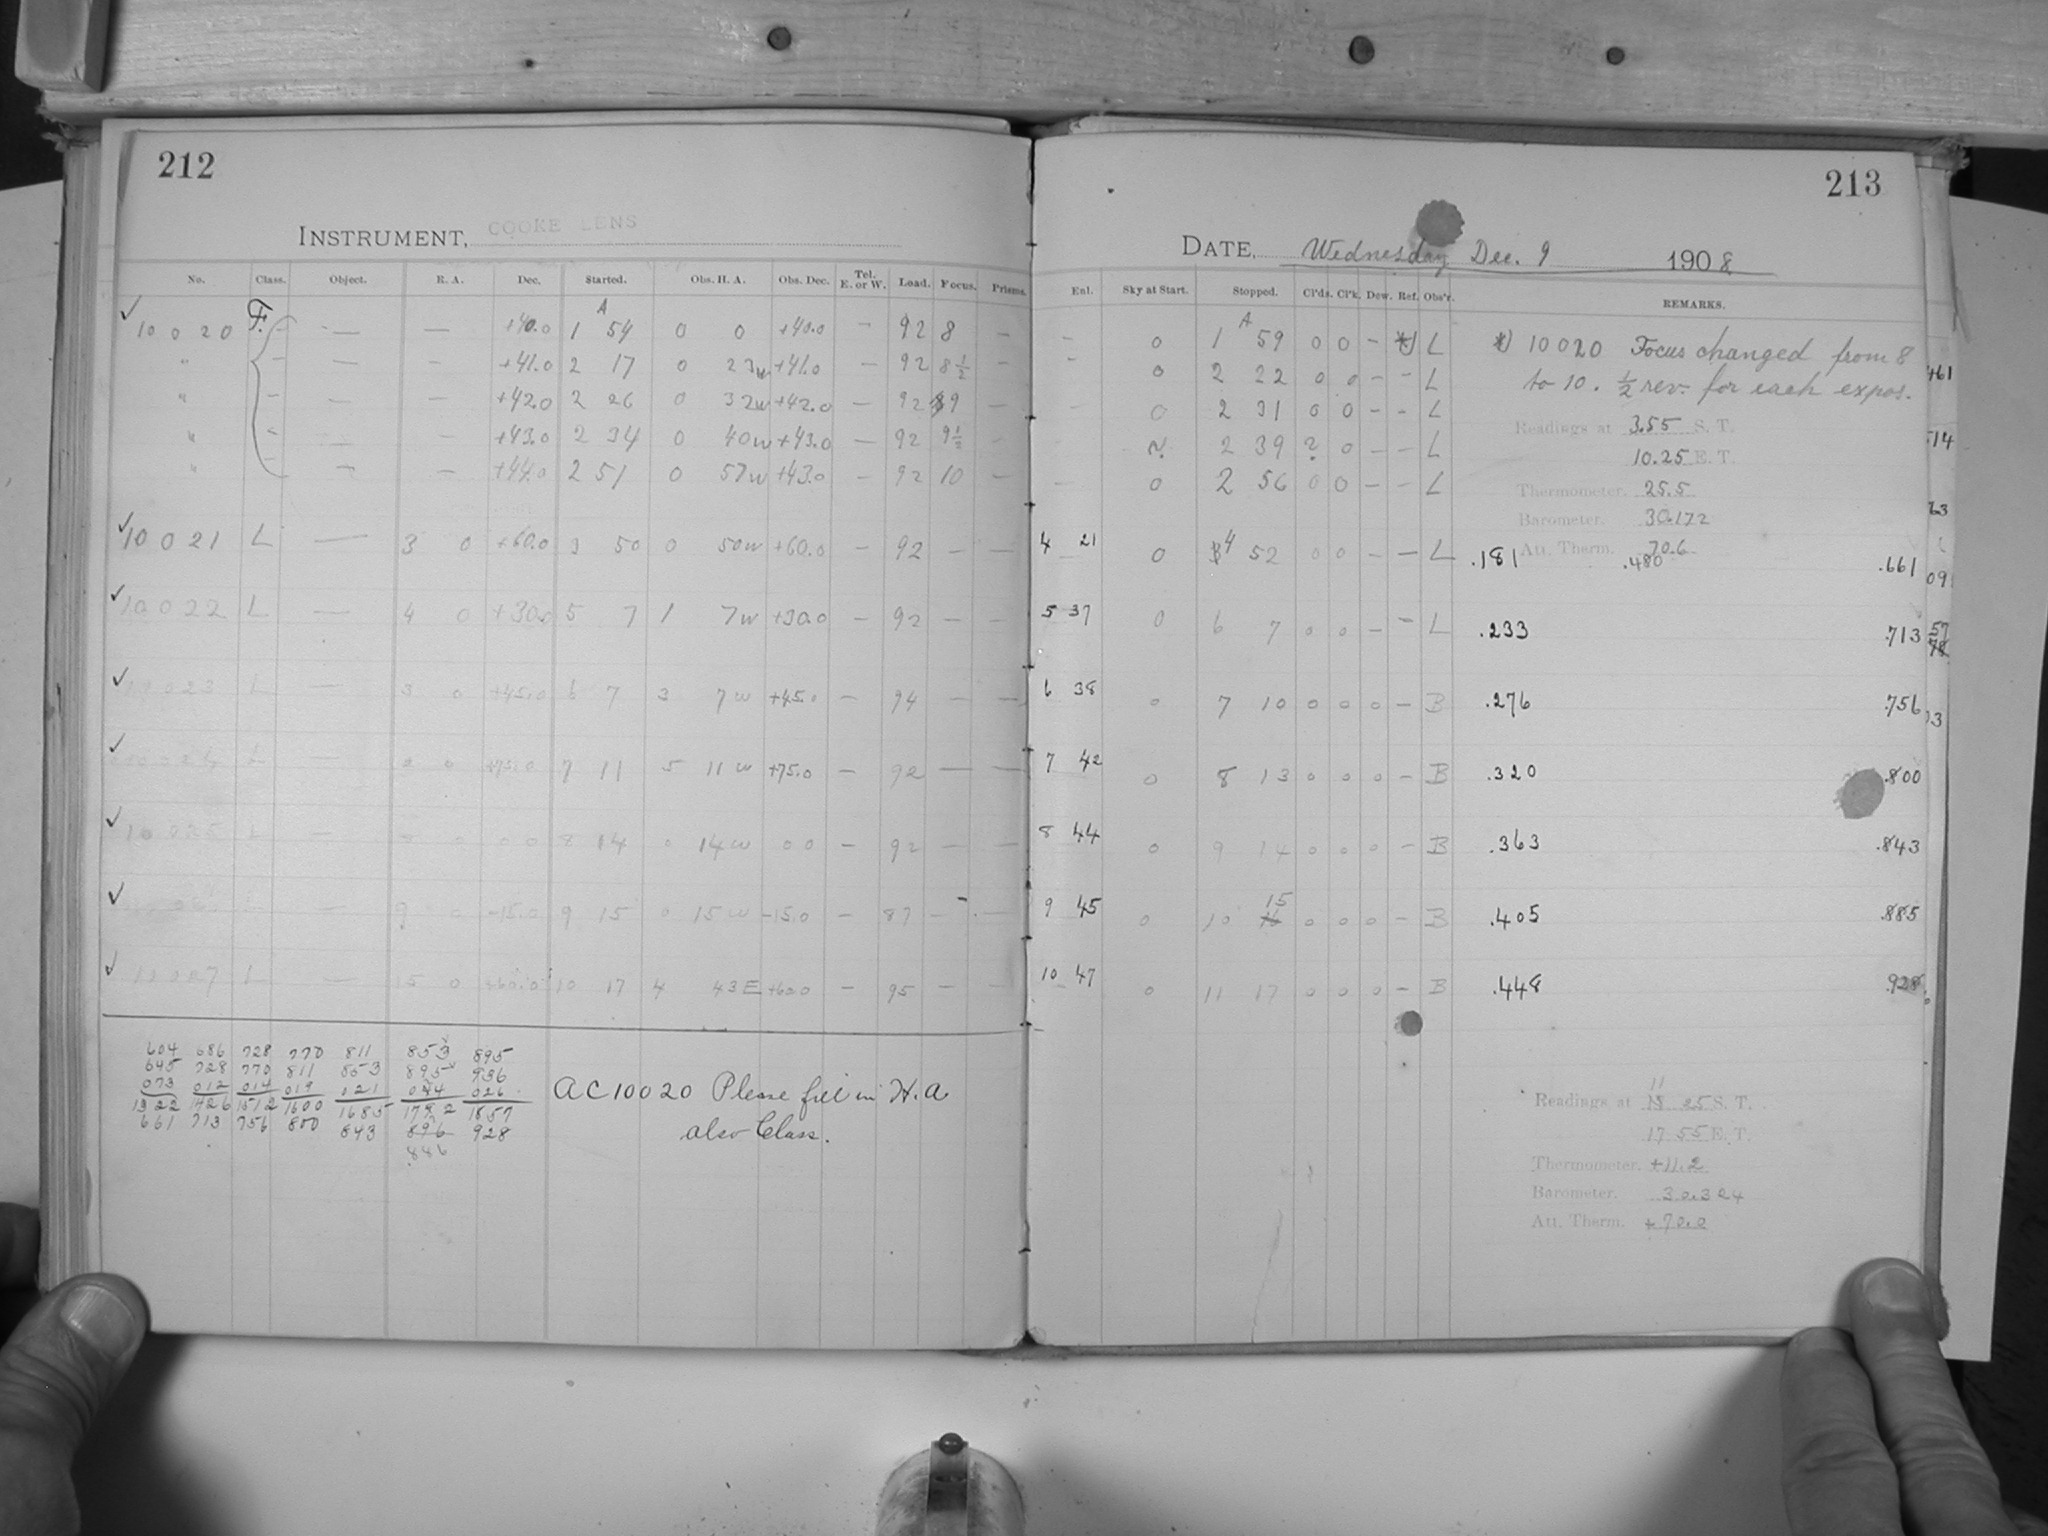 212
INSTRUMENT, COOKE LENS
No. Class. Object. R. A. Dec. Started. Obs. H. A. Obs. Dec. Tel. E. or W. Load. Focus. Prisms.
✓ 10020 F. — — +40.0 1 A 54 0 0 +40.0 — 92 8 —
" — — — +41.0 2 17 0 23w +41.0 — 92 8½ —
" — — — +42.0 2 26 0 32w +42.0 — 92 9 —
" — — — +43.0 2 34 0 40w +43.0 — 92 9½ —
" — — — +44.0 2 51 0 57w +43.0 — 92 10 —
✓ 10021 L — 3 0 +60.0 3 50 0 50w +60.0 — 92 — —
✓ 10022 L — 4 0 +30.0 5 7 1 7w +30.0 — 92 — —
✓ 10023 L — 3 0 +45.0 6 7 3 7w +45.0 — 94 — —
✓ 10024 L — 2 0 +75.0 7 11 5 11w +75.0 — 92 — —
✓ L — 8 0 0 0 8 14 0 14w 0 0 — 92 — —
✓ — 9 0 -15.0 9 15 0 15w -15.0 — 87 — —
✓ 10027 L — 15 0 +60.0 10 17 4 43E +60.0 — 95 — —
604 686 728 770 811 853 895
645 728 770 811 853 895 936
073 012 014 019 021 044 026
1322 1426 1512 1600 1685 1792 1857
661 713 756 800 843 896 928
886
AC10020 Please fill in H.A
also Class.
213
DATE, Wednesday Dec. 9 1908
Enl. Sky at Start. Stopped. Cl'ds. Cl'k. Dew. Ref. Obs'r. REMARKS.
— 0 1 A 59 0 0 — *) L *) 10020 Focus changed from 8
— 0 2 22 0 0 — — L to 10. ½ rev. for each expos.
— 0 2 31 0 0 — — L Readings at 3.55 S. T.
2 39 ? 0 — — L 10.25 E. T.
— 0 2 56 0 0 — — L Thermometer. 25.5
Barometer. 30.172
4 21 0 4 52 0 0 — — L Att. Therm. 70.6
.181 .480 .661
5 37 0 6 7 0 0 — — L .233 .713
6 38 0 7 10 0 0 0 — B .276 .756
7 42 0 8 13 0 0 0 — B .320 .800
8 44 0 9 14 0 0 0 — B .363 .843
9 45 0 10 15 0 0 0 — B .405 .885
10 47 0 11 17 0 0 0 — B .448 .928
Readings at 11 25 S. T.
17 55 E. T.
Thermometer. +11.2
Barometer. 30.324
Att. Therm. +70.0